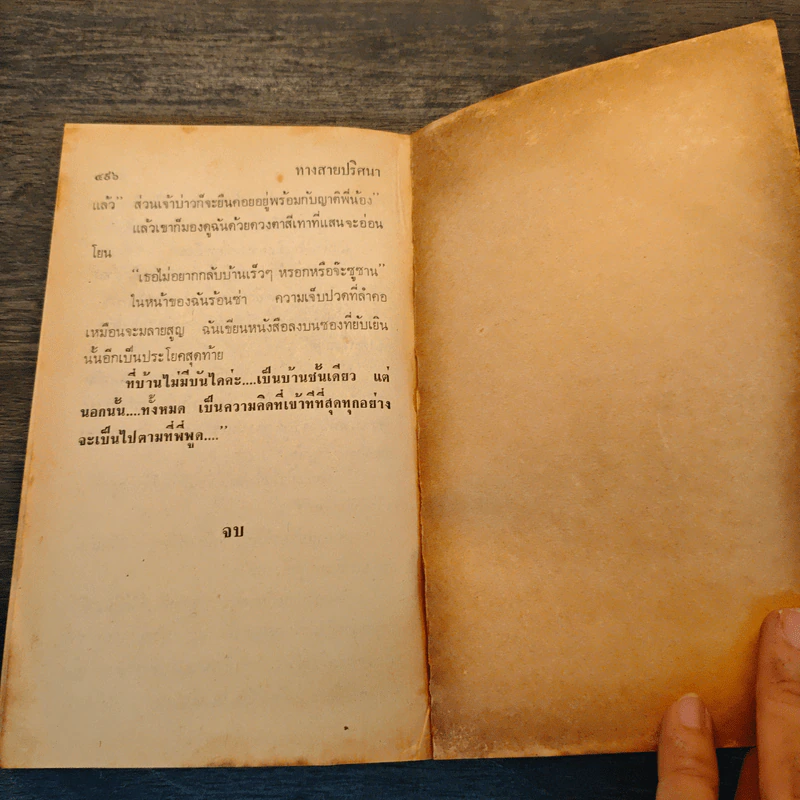 ๔๙๖ ทางสายปริศนา
แล้ว” ส่วนเจ้าบ่าวก็จะยืนคอยอยู่พร้อมกับญาติพี่น้อง”
แล้วเขาก็มองดูฉันด้วยดวงตาสีเทาที่แสนจะอ่อน
โยน
“เธอไม่อยากกลับบ้านเร็วๆ หรอกหรือจ๊ะซูซาน”
ใบหน้าของฉันร้อนซ่า ความเจ็บปวดที่ลำคอ
เหมือนจะมลายสูญ ฉันเขียนหนังสือลงบนซองที่ยับเยิน
นั้นอีกเป็นประโยคสุดท้าย
ที่บ้านไม่มีบันไดค่ะ....เป็นบ้านชั้นเดียว แต่
นอกนั้น....ทั้งหมด เป็นความคิดที่เข้าทีที่สุดทุกอย่าง
จะเป็นไปตามที่พี่พูด....”
จบ